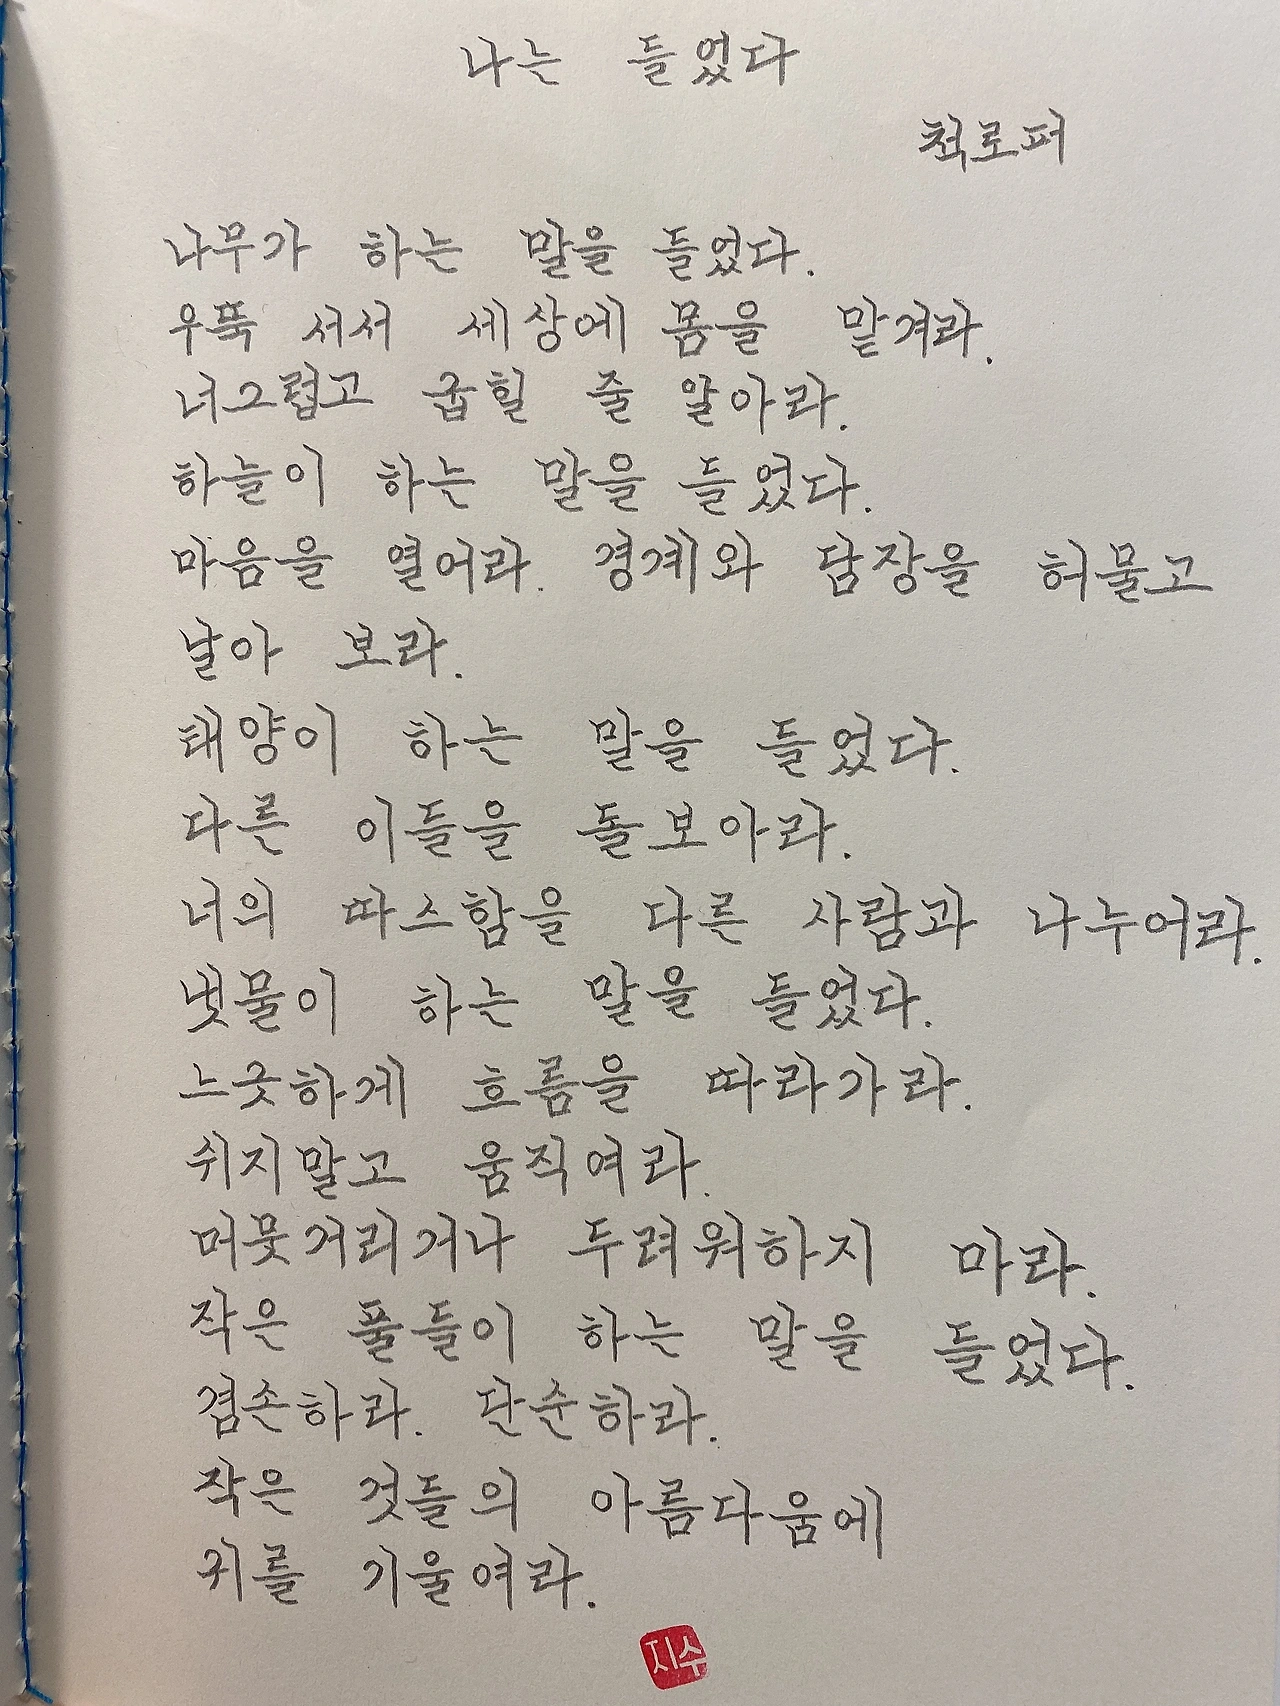 나는 들었다
척로퍼
나무가 하는 말을 들었다.
우뚝 서서 세상에 몸을 맡겨라.
너그럽고 굽힐 줄 알아라.
하늘이 하는 말을 들었다.
마음을 열어라. 경계와 담장을 허물고
날아 보라.
태양이 하는 말을 들었다.
다른 이들을 돌보아라.
너의 따스함을 다른 사람과 나누어라.
냇물이 하는 말을 들었다.
느긋하게 흐름을 따라가라.
쉬지말고 움직여라.
머뭇거리거나 두려워하지 마라.
작은 풀들이 하는 말을 들었다.
겸손하라. 단순하라.
작은 것들의 아름다움에
귀를 기울여라.
지수